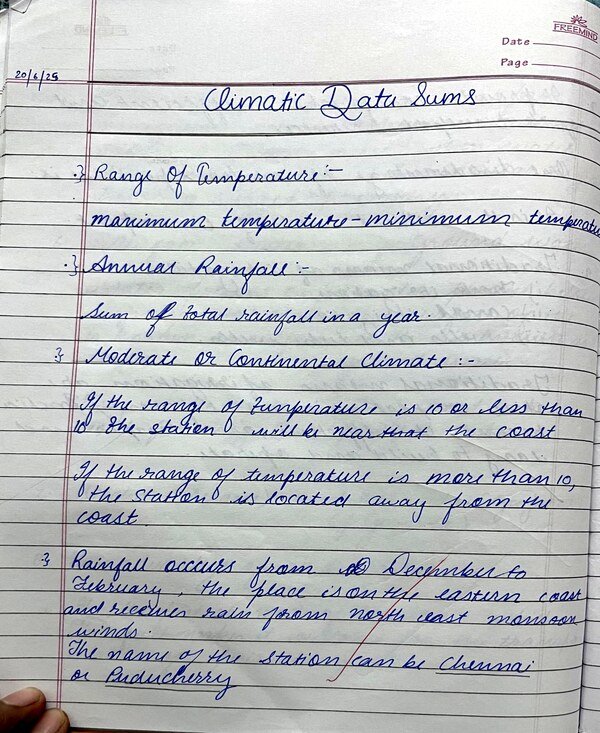 FREEMIND
Date
Page
20/6/25
Climatic Data Sums
Range of Temperature :-
maximum temperature - minimum temperatu
Annual Rainfall :-
Sum of total rainfall in a year.
Moderate or Continental Climate :-
If the range of temperature is 10 or less than
10 the station will be near that the coast
If the range of temperature is more than 10,
the station is located away from the
coast
Rainfall occurs from December to
February, the place is on the eastern coast
and receives rain from north east monsoon
winds.
The name of the station can be Chennai
or Puducherry